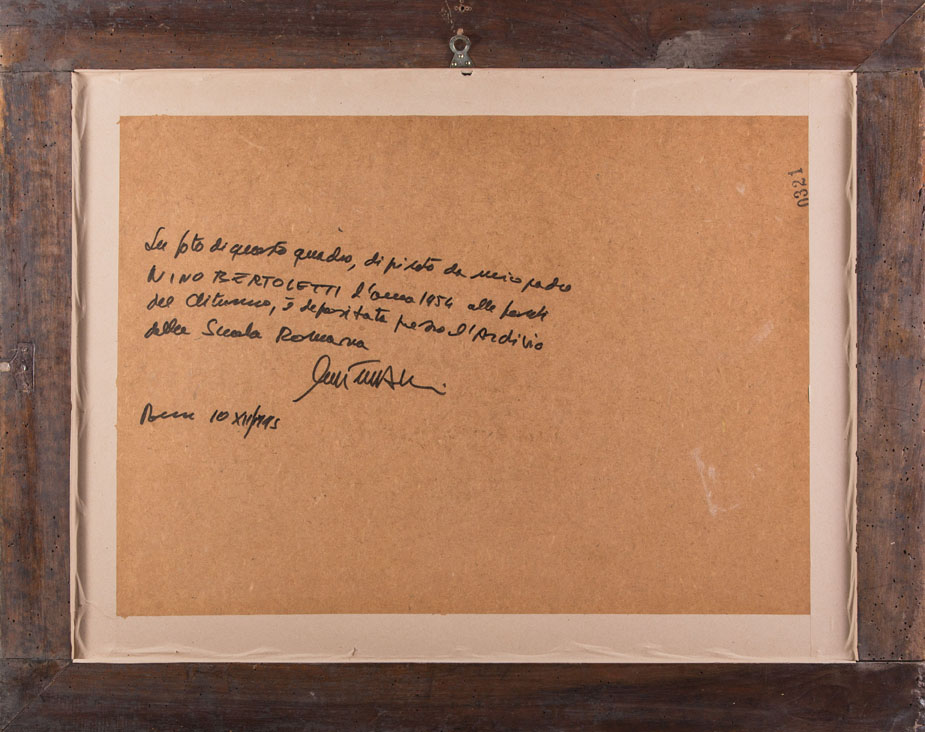 La foto di questo quadro, dipinto da mio padre
NINO BERTOLETTI l'anno 1954 alle
del Clitunno, è depositata presso l'Archivio
della Scuola Romana
10 XII
0321